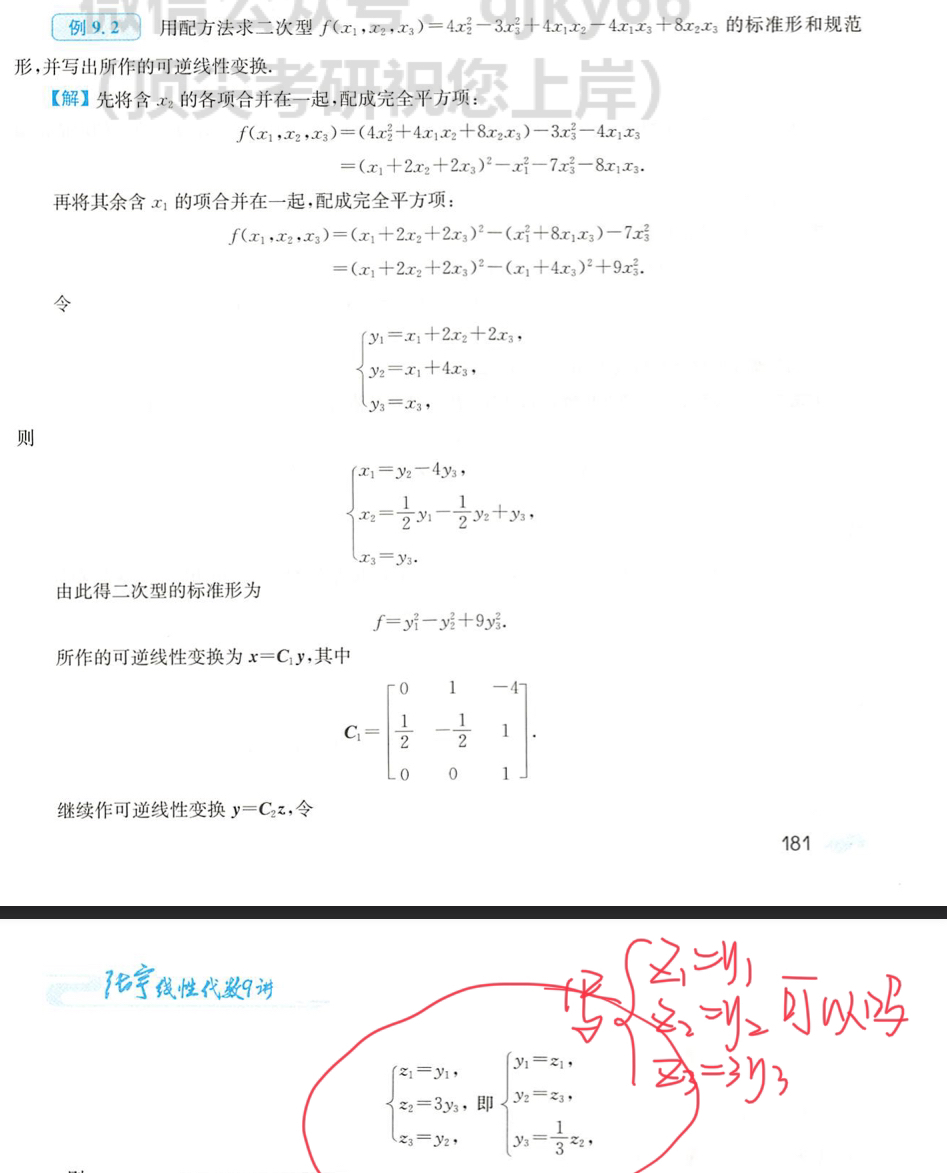 例 9.2 用配方法求二次型 f(x₁,x₂,x₃)=4x₂²-3x₃²+4x₁x₂-4x₁x₃+8x₂x₃ 的标准形和规范
形,并写出所作的可逆线性变换.
(顶尖考研祝您上岸)
【解】先将含 x₂ 的各项合并在一起,配成完全平方项:
f(x₁,x₂,x₃)=(4x₂²+4x₁x₂+8x₂x₃)-3x₃²-4x₁x₃
=(x₁+2x₂+2x₃)²-x₁²-7x₃²-8x₁x₃.
再将其余含 x₁ 的项合并在一起,配成完全平方项:
f(x₁,x₂,x₃)=(x₁+2x₂+2x₃)²-(x₁²+8x₁x₃)-7x₃²
=(x₁+2x₂+2x₃)²-(x₁+4x₃)²+9x₃².
令
y₁=x₁+2x₂+2x₃,
y₂=x₁+4x₃,
y₃=x₃,
则
x₁=y₂-4y₃,
x₂=1/2y₁-1/2y₂+y₃,
x₃=y₃.
由此得二次型的标准形为
f=y₁²-y₂²+9y₃².
所作的可逆线性变换为 x=C₁y,其中
C₁=
0 1 -4
1/2 -1/2 1
0 0 1
.
继续作可逆线性变换 y=C₂z,令
181
张宇线性代数9讲
写 z₁=y₁
z₂=y₂ 可以吗
z₃=3y₃
z₁=y₁, y₁=z₁,
z₂=3y₃, 即 y₂=z₃,
z₃=y₂, y₃=1/3z₂,